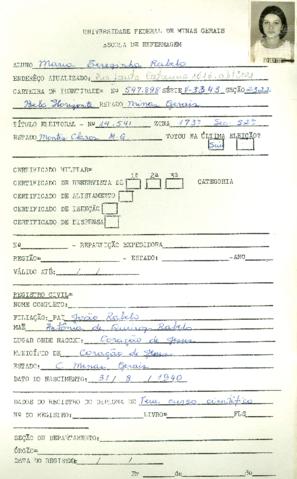 UNIVERSIDADE FEDERAL DE MINAS GERAIS
ESCOLA DE ENFERMAGEM
ALUNO Maria Terezinha Rabelo
ENDERÊÇO ATUALIZADO:
CARTEIRA DE IDENTIDADE= Nº 547.898 SÉRIE V-3343 SEÇÃO
Belo Horizonte ESTADO Minas Gerais
TÍTULO ELEITORAL - Nº 14.541 ZONA 173ª
ESTADO Montes Claros M.G. VOTOU NA ÚLTIMA ELEIÇÃO?
Sim
CERTIFICADO MILITAR=
1ª 2ª 3ª
CERTIFICADO DE RESERVISTA DE CATEGORIA
CERTIFICADO DE ALISTAMENTO
CERTIFICADO DE ISENÇÃO
CERTIFICADO DE DISPENSA
Nº - REPARTIÇÃO EXPEDIDORA
REGIÃO= - ESTADO: -ANO
VÁLIDO ATÉ: / /
REGISTRO CIVIL=
NOME COMPLETO:
FILIAÇÃO: PAI João Rabelo
MÃE Antônia de Queiroz Rabelo
LUGAR ONDE NASCEU: Coração de Jesus
MUNICÍPIO DE Coração de Jesus
ESTADO: Minas Gerais
DATA DO NASCIMENTO: 31 / 8 / 1940
DADOS DO REGISTRO DO DIPLOMA DE Tem curso científico
Nº DO REGISTRO: LIVRO= FLS
SEÇÃO DE DEPARTAMENTO:
ÓRGÃO=
DATA DO REGISTRO: / /
de de